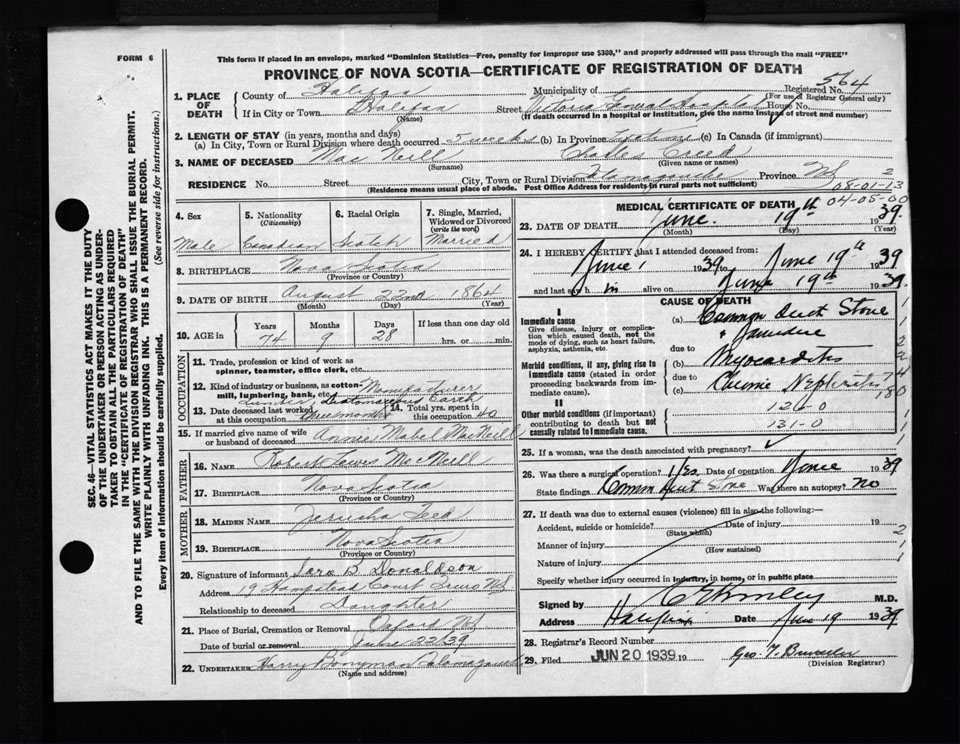 FORM 6
This form if placed in an envelope, marked "Dominion Statistics—Free, penalty for improper use $300," and properly addressed will pass through the mail "FREE"
PROVINCE OF NOVA SCOTIA—CERTIFICATE OF REGISTRATION OF DEATH
564
1. PLACE OF DEATH
County of Halifax Municipality of Registered No.
(For use of Registrar General only)
If in City or Town Halifax Street Victoria General Hospital House No.
(Name) (If death occurred in a hospital or institution, give the name instead of street and number)
2. LENGTH OF STAY (in years, months and days)
(a) In City, Town or Rural Division where death occurred 5 weeks (b) In Province Lifetime (c) In Canada (if immigrant)
3. NAME OF DECEASED MacNeill Charles Creed
(Surname) (Given name or names)
RESIDENCE No. Street City, Town or Rural Division Tatamagouche Province NS 2
(Residence means usual place of abode. Post Office Address for residents in rural parts not sufficient)
08-01-13
04-05-00
4. Sex
Male
5. Nationality (Citizenship)
Canadian
6. Racial Origin
Scotch
7. Single, Married, Widowed or Divorced (write the word)
Married
8. BIRTHPLACE Nova Scotia
(Province or Country)
9. DATE OF BIRTH August 22nd 1864
(Month) (Day) (Year)
10. AGE in Years Months Days If less than one day old
74 9 28 hrs. or min.
OCCUPATION
11. Trade, profession or kind of work as spinner, teamster, office clerk, etc.
12. Kind of industry or business, as cotton-mill, lumbering, bank, etc. Manufacturer
Lumber, Diatomaceous Earth
13. Date deceased last worked at this occupation three months 14. Total yrs. spent in this occupation 40
15. If married give name of wife or husband of deceased Annie Mabel MacNeill
FATHER
16. NAME Robert Lewis McNeill
17. BIRTHPLACE Nova Scotia
(Province or Country)
MOTHER
18. MAIDEN NAME Jerusha Teed
19. BIRTHPLACE Nova Scotia
(Province or Country)
20. Signature of informant B Donaldson
Address 19 Hampstead Court Truro NS
Relationship to deceased Daughter
21. Place of Burial, Cremation or Removal Oxford NS
Date of burial or removal June 22/39
22. UNDERTAKER Harry Bonyman Tatamagouche
(Name and address)
MEDICAL CERTIFICATE OF DEATH
23. DATE OF DEATH June 19th 1939
(Month) (Day) (Year)
24. I HEREBY CERTIFY that I attended deceased from:
June 1 1939 to June 19th 1939
and last saw h im alive on June 19th 1939
CAUSE OF DEATH
I
Immediate cause
Give disease, injury or complication which caused death, not the mode of dying, such as heart failure, asphyxia, asthenia, etc.
(a) Common duct Stone
Jaundice
due to
Morbid conditions, if any, giving rise to immediate cause (stated in order proceeding backwards from immediate cause).
(b) Myocarditis
due to
(c) Chronic Nephritis
II
Other morbid conditions (if important) contributing to death but not causally related to immediate cause.
126-0
131-0
25. If a woman, was the death associated with pregnancy?
26. Was there a surgical operation? Yes Date of operation June 1939
State findings Common duct Stone Was there an autopsy? no
27. If death was due to external causes (violence) fill in also the following:—
Accident, suicide or homicide? Date of injury 19
(State which)
Manner of injury
(How sustained)
Nature of injury
Specify whether injury occurred in industry, in home, or in public place
Signed by M.D.
Address Halifax Date June 19 1939
28. Registrar's Record Number
29. Filed JUN 20 1939 19 Geo. T.
(Division Registrar)
SEC. 46—VITAL STATISTICS ACT MAKES IT THE DUTY
OF THE UNDERTAKER OR PERSON ACTING AS UNDER-
TAKER TO OBTAIN ALL THE PARTICULARS REQUIRED
IN THE "CERTIFICATE OF REGISTRATION OF DEATH"
AND TO FILE THE SAME WITH THE DIVISION REGISTRAR WHO SHALL ISSUE THE BURIAL PERMIT.
WRITE PLAINLY WITH UNFADING INK. THIS IS A PERMANENT RECORD.
Every item of Information should be carefully supplied. (See reverse side for instructions.)